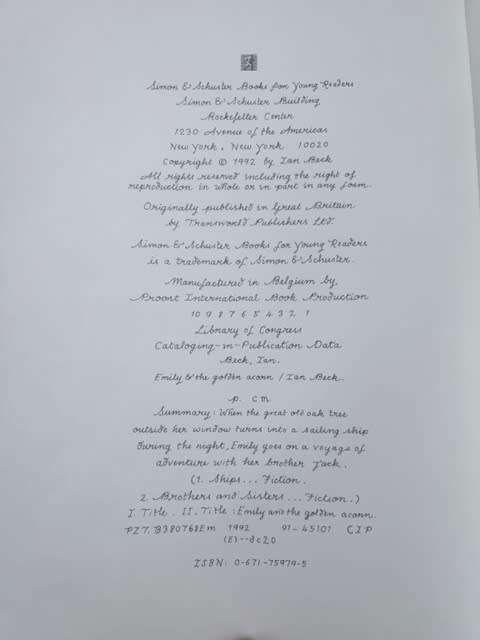 Simon & Schuster Books for Young Readers
Simon & Schuster Building
Rockefeller Center
1230 Avenue of the Americas
New York, New York 10020
Copyright © 1992 by Ian Beck
All rights reserved including the right of
reproduction in whole or in part in any form.
Originally published in Great Britain
by Transworld Publishers Ltd.
Simon & Schuster Books for Young Readers
is a trademark of Simon & Schuster.
Manufactured in Belgium by
Proost International Book Production
10 9 8 7 6 5 4 3 2 1
Library of Congress
Cataloging-in-Publication Data
Beck, Ian.
Emily & the golden acorn / Ian Beck.
p. cm
Summary: When the great old oak tree
outside her window turns into a sailing ship
during the night, Emily goes on a voyage of
adventure with her brother Jack.
(1. Ships... Fiction.
2. Brothers and Sisters... Fiction.)
I. Title. II. Title: Emily and the golden acorn.
PZ7.B380768Em 1992 91-45101 CIP
(E)--dc20
ISBN: 0-671-75979-5